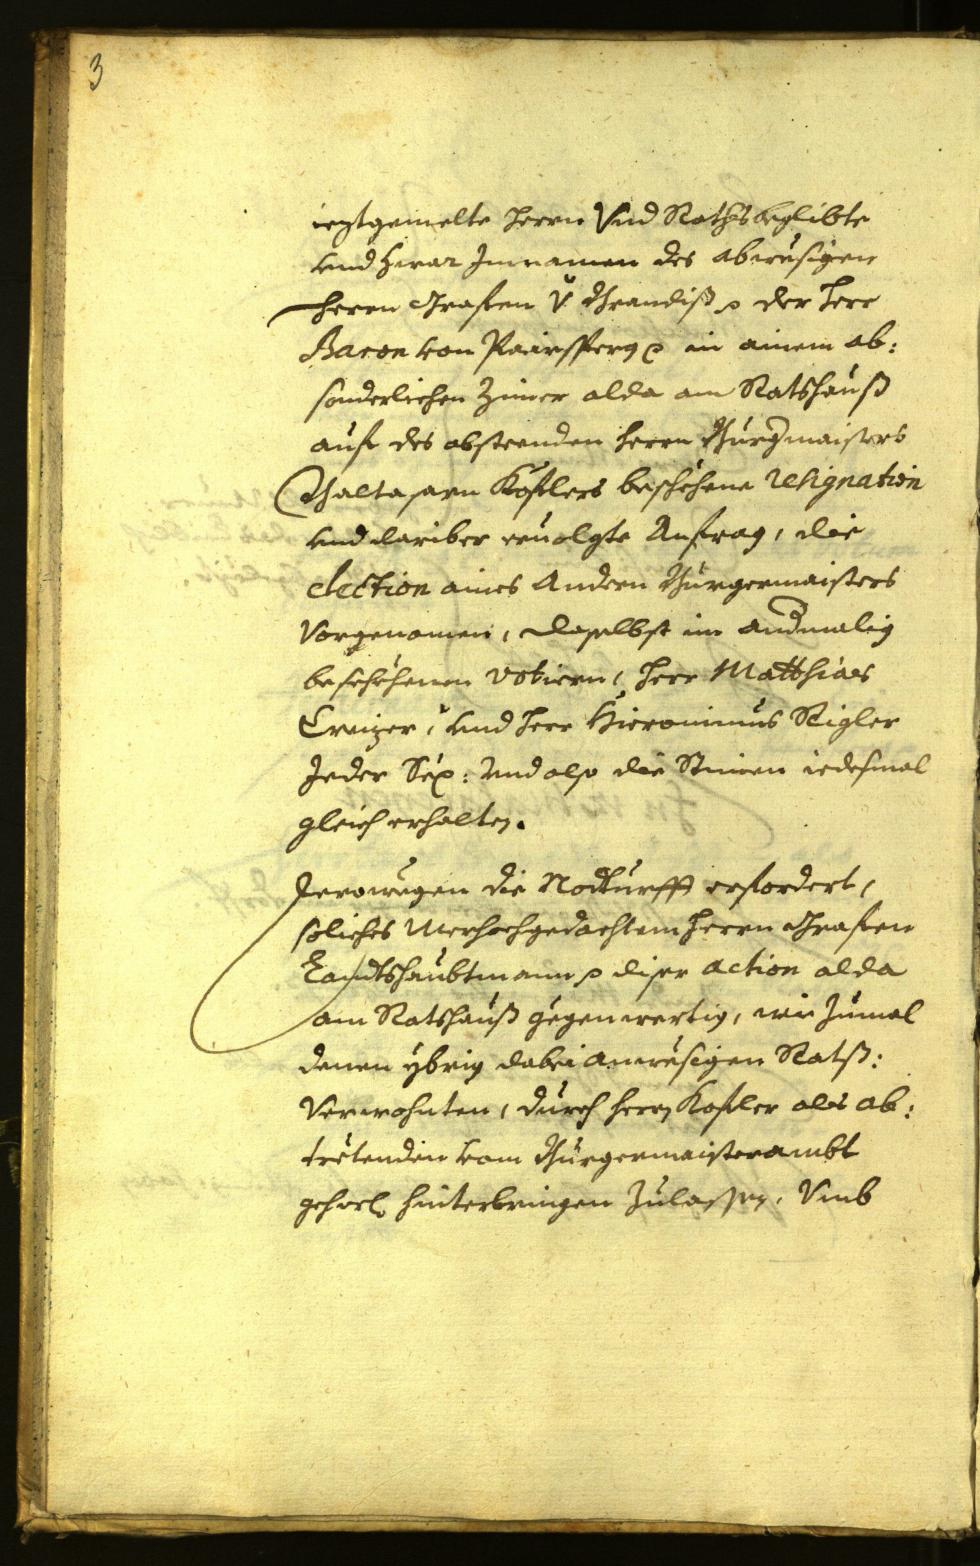 3
ieztgemelte herrn Vnd Rathsbeglibte
vnd zwar Jnnamen des abweßigen
herrn Graffen v: Brandiß p der herr
Baron von Paÿrsperg p in ainem ab:
sonderlichen Zimer alda am Ratshauß
auf des abstendten herrn Burgmaisters
Balthasarn Kofflers beschehene resignation
vnd dariber ervolgte Anfrag, die
election aines Andern Burgermaisters
Vorgenomen, daselbst im andmalig
beschehenen votiern, herr Matthias
Creizer, vnd herr Hieronimus Rigler
Jeder Sex: Vnd also die Stimen iedesmal
gleich erhalten.
Derowegen die Nodturfft erfordert,
soliches Merhochgedachtem herrn Graffen
Landtshaubtmann p diser action alda
am Ratshauß gegenwertig, wie Zumal
denen ybrig dabei Anweßigen Ratß:
Verwohnten, durch herrn Kofler als ab:
tretenden vom Burgermaisterambt
gehorsl. hinterbringen Zulassen, Vmb